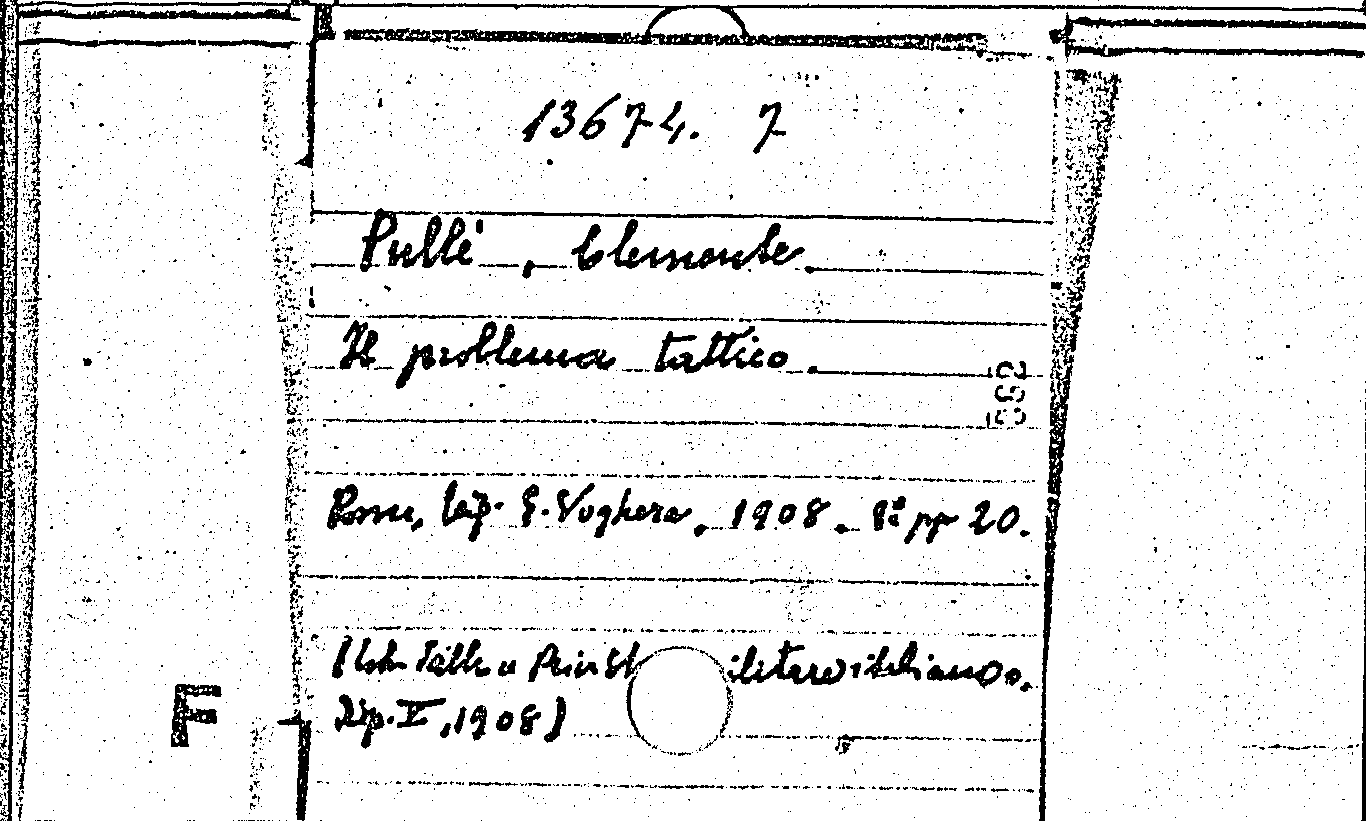 13674. 7
Pullè, Clemente.
Il problema tattico.
592
Roma, tip. E. Voghera, 1908. 8° pp 20.
(Estr. dalla Rivist ilitare italiana.
Disp. V, 1908)
F